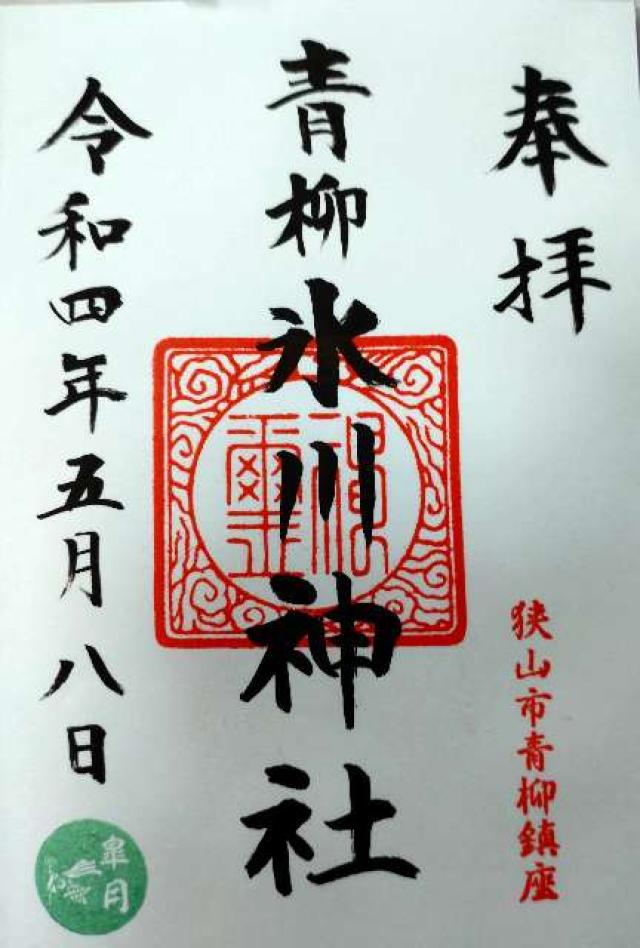 奉拝
狭山市青柳鎮座
青柳氷川神社
神璽
令和四年五月八日
皐月